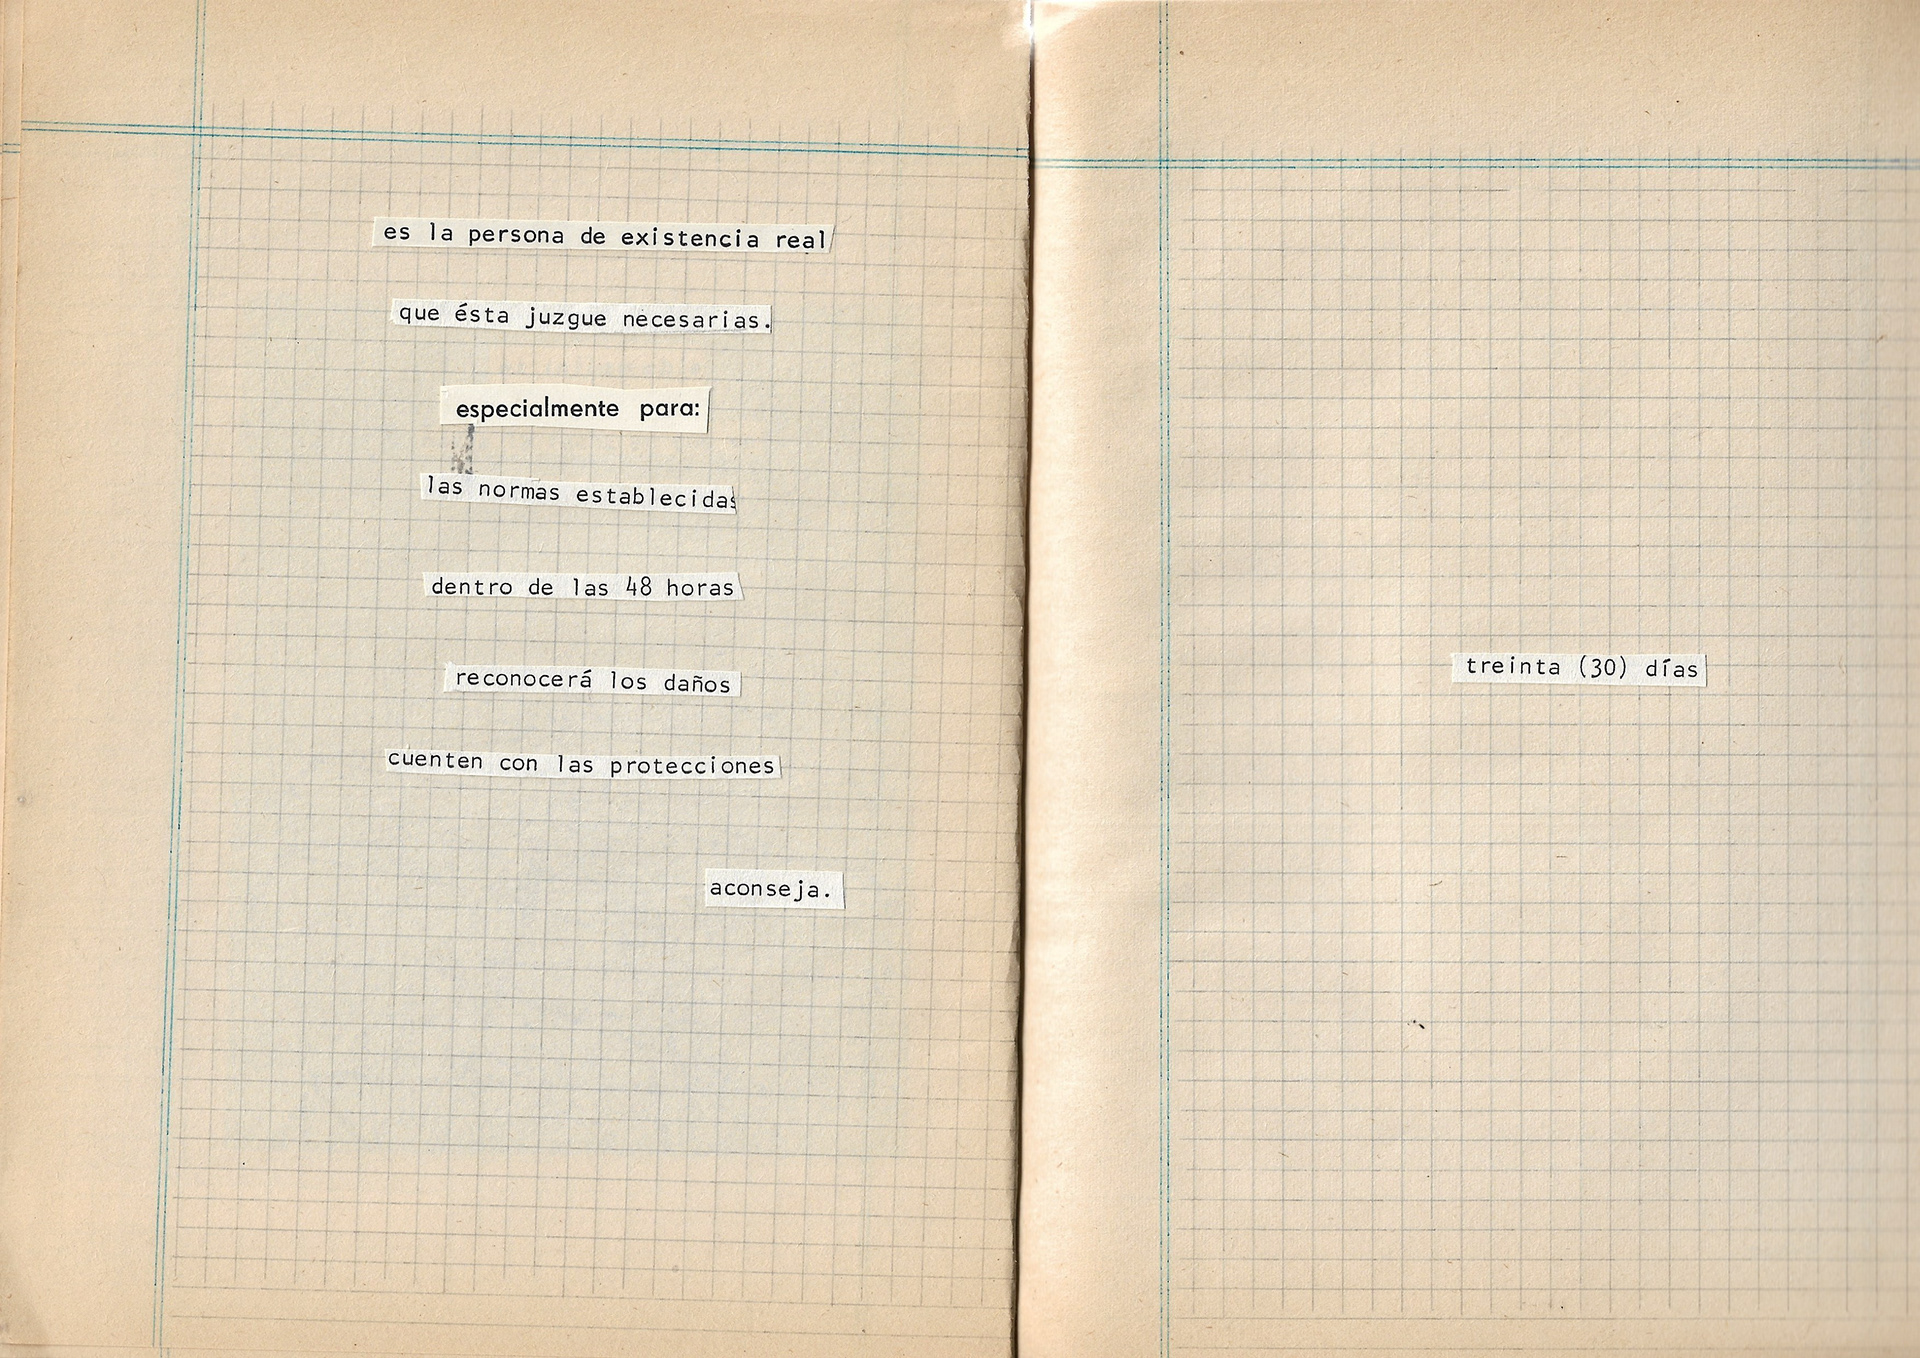 es la persona de existencia real
que ésta juzgue necesarias.
especialmente para:
las normas establecidas
dentro de las 48 horas
reconocerá los daños
cuenten con las protecciones
aconseja.
treinta (30) días